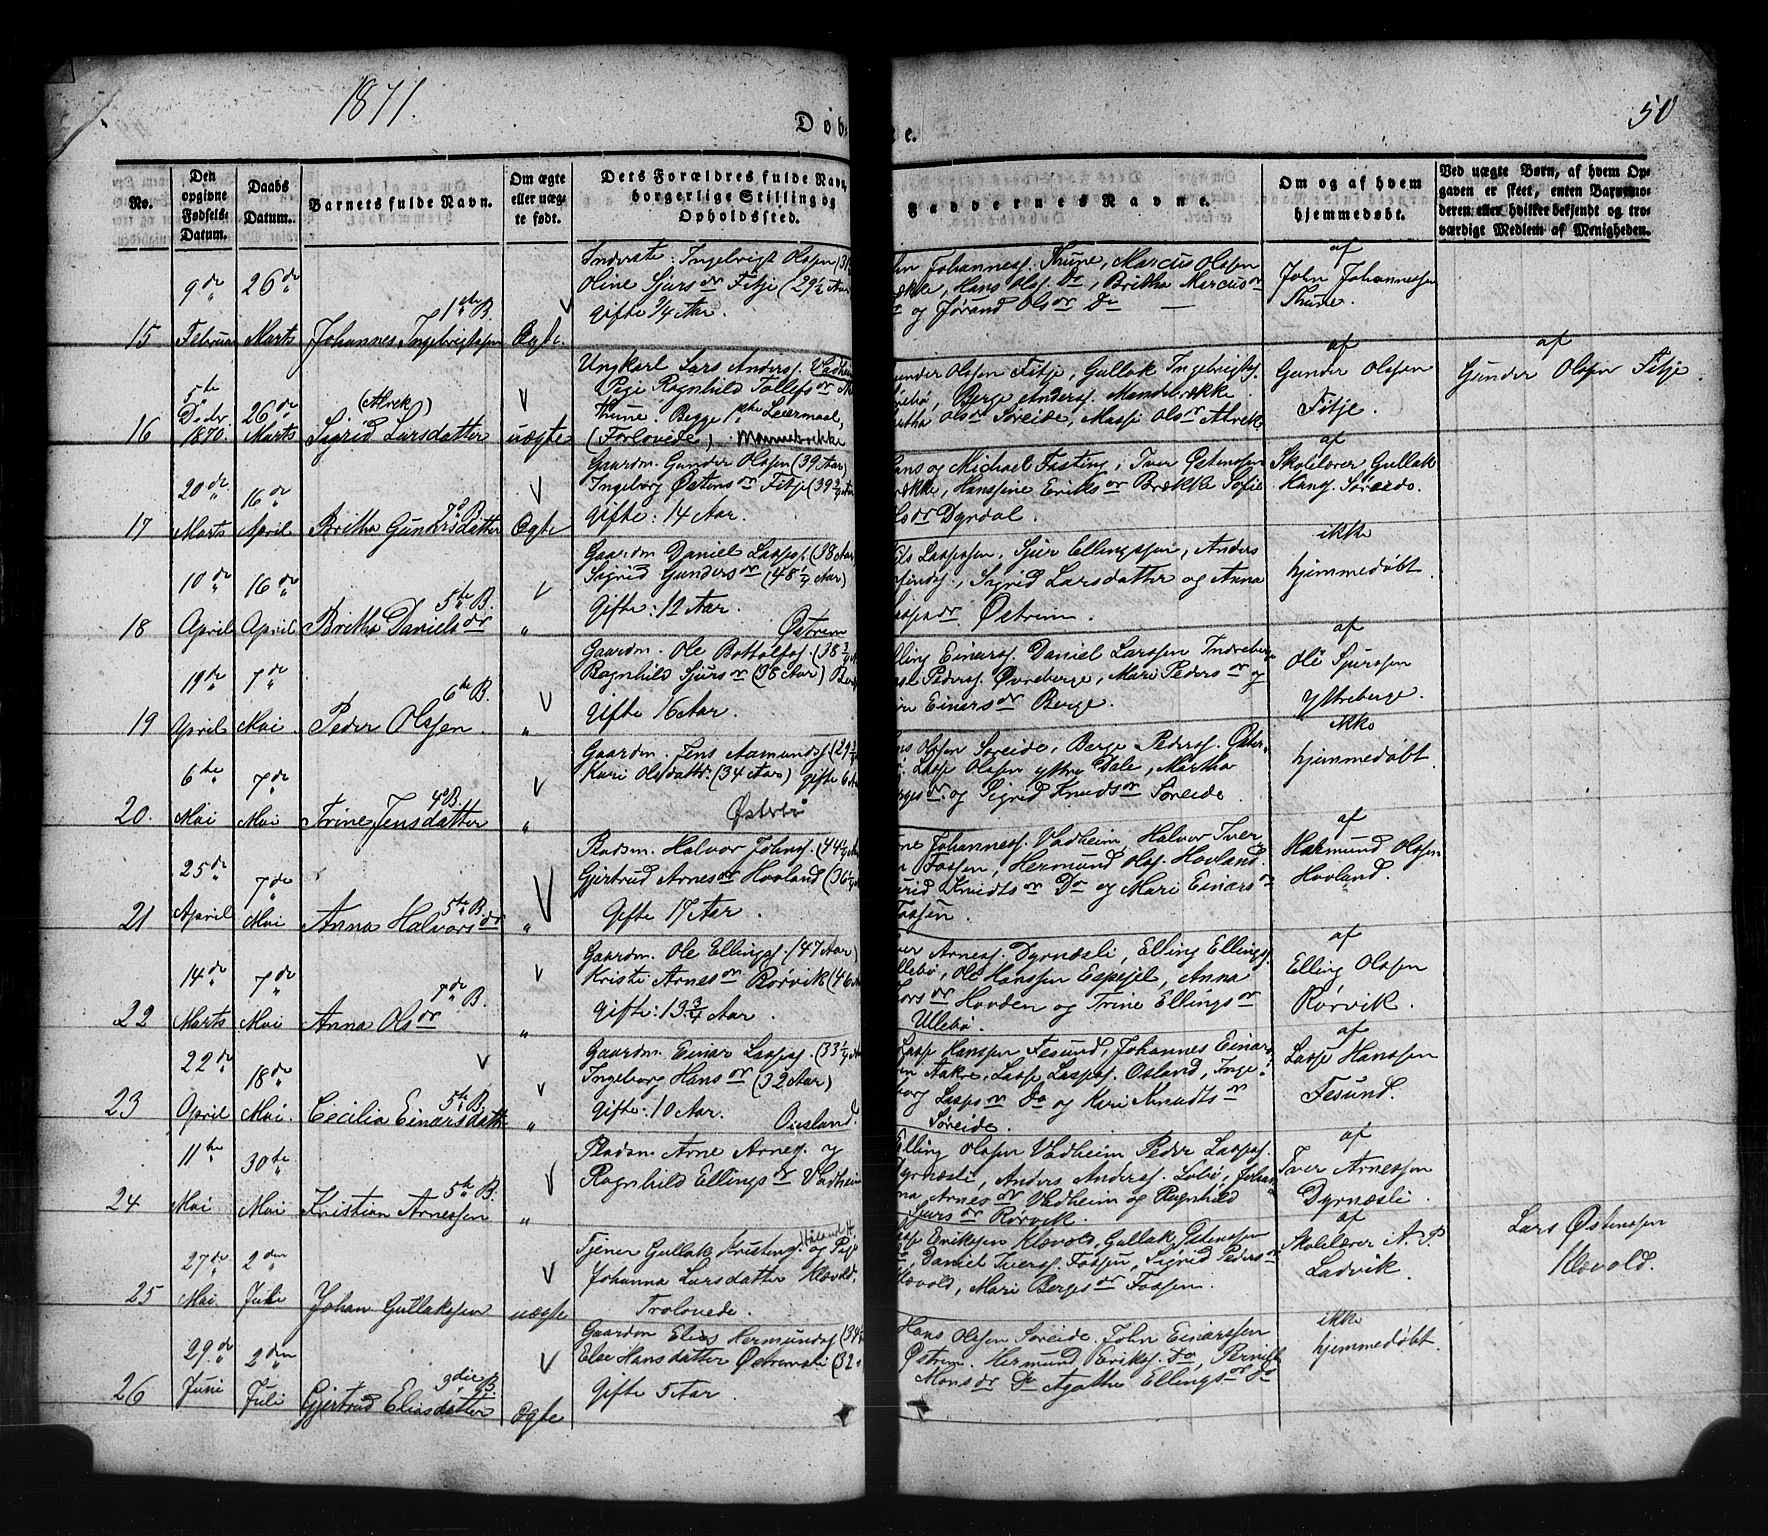 1871.
Døb
e.
50
No.
Den opgivne Fødsels-Datum.
Daabs Datum.
Barnets fulde Navn.
Om ægte eller uægte født.
Dets Forældres fulde Navn, borgerlige Stilling og Opholdssted.
Faddernes Navne.
Om og af hvem hjemmedøbt.
Ved uægte Børn, af hvem Opgaven er skeet, enten Barnemoderen eller hvilket bekjendt og troværdigt Medlem af Menigheden.
15
9de Februar
26de Marts
1ste B.
Johannes Ingelvigtssen
Ægte.
Inderste: Ingelvigt Olssen
Oline Sjursdr Fitje (29½ Aar)
gifte ¼ Aar.
Johanness. Thune, Marcus Olssen
Hans Olss. Do, Britha Marcusdr
og Jørand Olsdr Do
af
John Johannessen
Thune.
16
5te Decbr 1870.
26de Marts
(Alvek)
Sigrid Larsdatter
uægte
Ungkarl Lars Anderss. Vadheim
Pige Ragnhild Tollefsdr
Thune. Begge 1ste Leiermaal,
(Forlovede).
Olssen Fitje, Gullak Ingelvigts.
Berge Anderss.
Olsdr Søreide, Olsdr Alvek
af
Gunder Olssen
Fitje.
af
Gunder Olssen Fitje.
17
20de Marts
16de April
7de B.
Britha Gundersdatter
Ægte
Gaardm. Gunder Olssen (39 Aar)
Ingeborg Østensdr Fitje
gifte: 14 Aar.
og Michael Fasting, Iver Østenssen
Hanssine Eriksdr Brække Sofie
Dyrdal.
af
Skolelærer Gullak
Hans. Søreide.
18
10de April
16de April
5te B.
Britha Danielsdr
"
Gaardm. Daniel Lasses. (38 Aar)
Sigrid Gundersdr (48¼ Aar)
gifte: 12 Aar.
Østrem
Lassesen, Sjur Ellingssen, Anders
Sigrid Larsdatter og Anna
Østrem.
ikke
hjemmedøbt.
19
19de April
7de Mai
6te B.
Peder Olssen.
"
Gaardm. Ole Bottolfss.
Ragnhild Sjursdr (38 Aar)
gifte 16 Aar.
Einarss. Daniel Larssen Indreberge
Pederss. Øvreberge, Mari Pedersdr og
Einarsdr Berge.
af
Ole Sjurssen
Ytreberge.
20.
6te Mai
7de Mai
4de B.
Trine Jensdatter
"
Gaardm. Jens Aamunds.
Kari Olsdatter (34 Aar) gifte 6
Østerbø
Olssen Søreide, Berge Pederss.
Lasse Olssen Ytre Dale, Martha
og Sigrid Knudsdr Søreide.
ikke
hjemmedøbt.
21
25de April
7de Mai
5te B.
Anna Halvorsdr
"
Pladsm. Halvor Johns.
Gjertrud Arnesdr Hovland
gifte 17 Aar.
Johanness. Vadheim, Halvor Iver
Fossen, Hermund Olss. Hovland
Knudtsdr Do og Mari Einarsdr
Fossen.
af
Hermund Olssen
Hovland.
22
14de Marts
7de Mai
7de B.
Anna Olsdr
"
Gaardm. Ole Ellings. (47 Aar)
Kristi Arnesdr Rørvik
gifte: 19¾ Aar.
Arness. Dyrnæsli, Elling Ellings.
Ole Hanssen Espejel, Anna
Hovden og Trine Ellingsdr
Ullebø.
af
Elling Olssen
Rørvik.
23
22de April
18de Mai.
5te B.
Cecilia Einarsdatter
"
Gaardm. Einar Lasses.
Ingeborg Hansdr (32 Aar)
gifte: 10 Aar.
Ousland.
Lasse Hanssen Fesund, Johannes Einars
Aakre, Lasse Lasses. Osland, Inge-
borg Lassesdr Do og Kari Knudtsdr
Søreide.
af
Lasse Hanssen
Fesund.
24
11te Mai
30te Mai
5te B.
Kristian Arnessen
"
Pladsm. Arne Arness. og
Ragnhild Ellingsdr Vadheim
Elling Olssen Vadheim Peder Lasses.
Dyrnæsli, Anders Anderss.
Arnesdr Vadheim og Ragnhild
Sjursdr Rørvik.
af
Iver Arnessen
Dyrnæsli.
25
27de Mai
2den Juli
Johan Gullakssen
uægte
Tjener Gullak Kristens. og Pige
Johanna Larsdatter Klævold.
Trolovede.
Erikssen Klævold, Gullak Østenssen
Daniel Iverss. Fossen, Sigrid Pedersdr
Klævold, Mari Bergesdr Fossen.
af
Skolelærer A. P.
Ladvik.
Lars Østenssen
Klævold.
26
29de Juni
2den Juli
B.
Gjertrud Eliasdatter
Ægte
Gaardm Elias Hermunds.
Else Hansdatter
gifte 5 Aar.
Hans Olssen Søreide. John Einarssen
Østrem. Hermund Erikss. Do, Pernille
Monsdr Do Agathe Ellingsdr Do
ikke
hjemmedøbt.